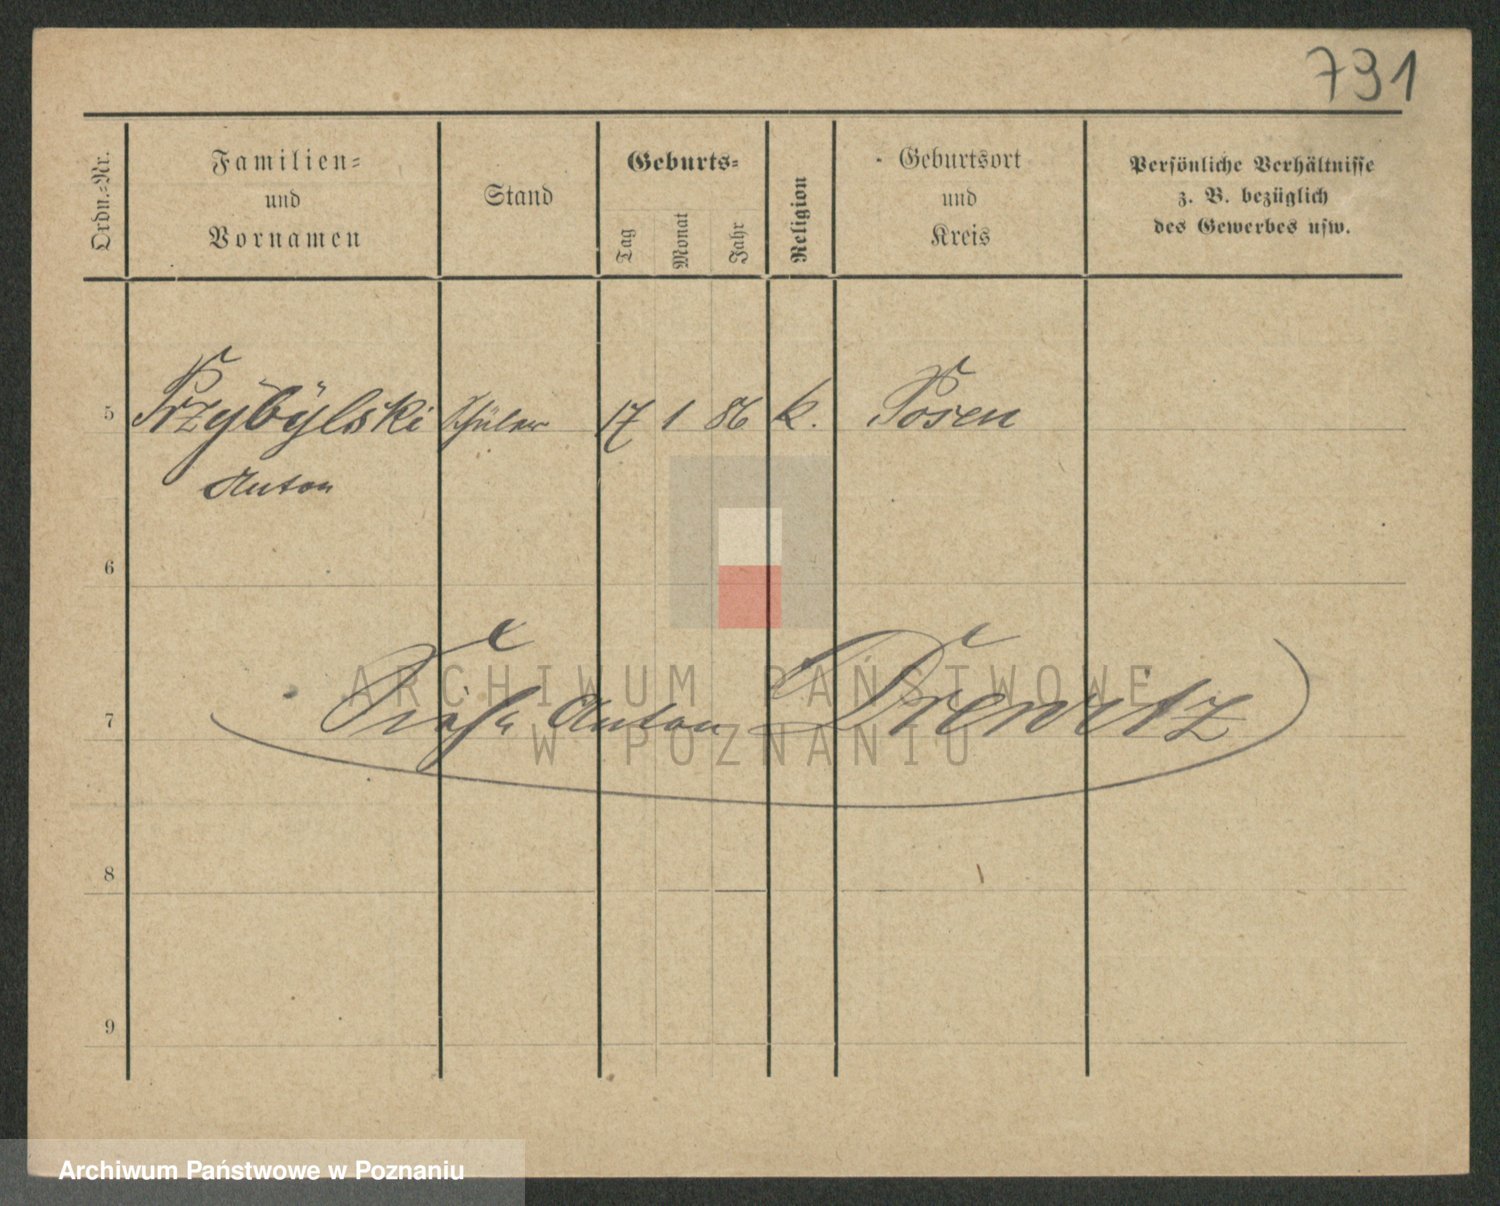 731
Ordn.-Nr.
Familien-
und
Vornamen
Stand
Geburts-
Tag
Monat
Jahr
Religion
Geburtsort
und
Kreis
Persönliche Verhältnisse
z. B. bezüglich
des Gewerbes usw.
5 Przybylski Schüler 17 1 86 k. Posen
Anton
6
ARCHIWUM PAŃSTWOWE
W POZNANIU
7 Siehe Anton Drewitz
8
9
Archiwum Państwowe w Poznaniu